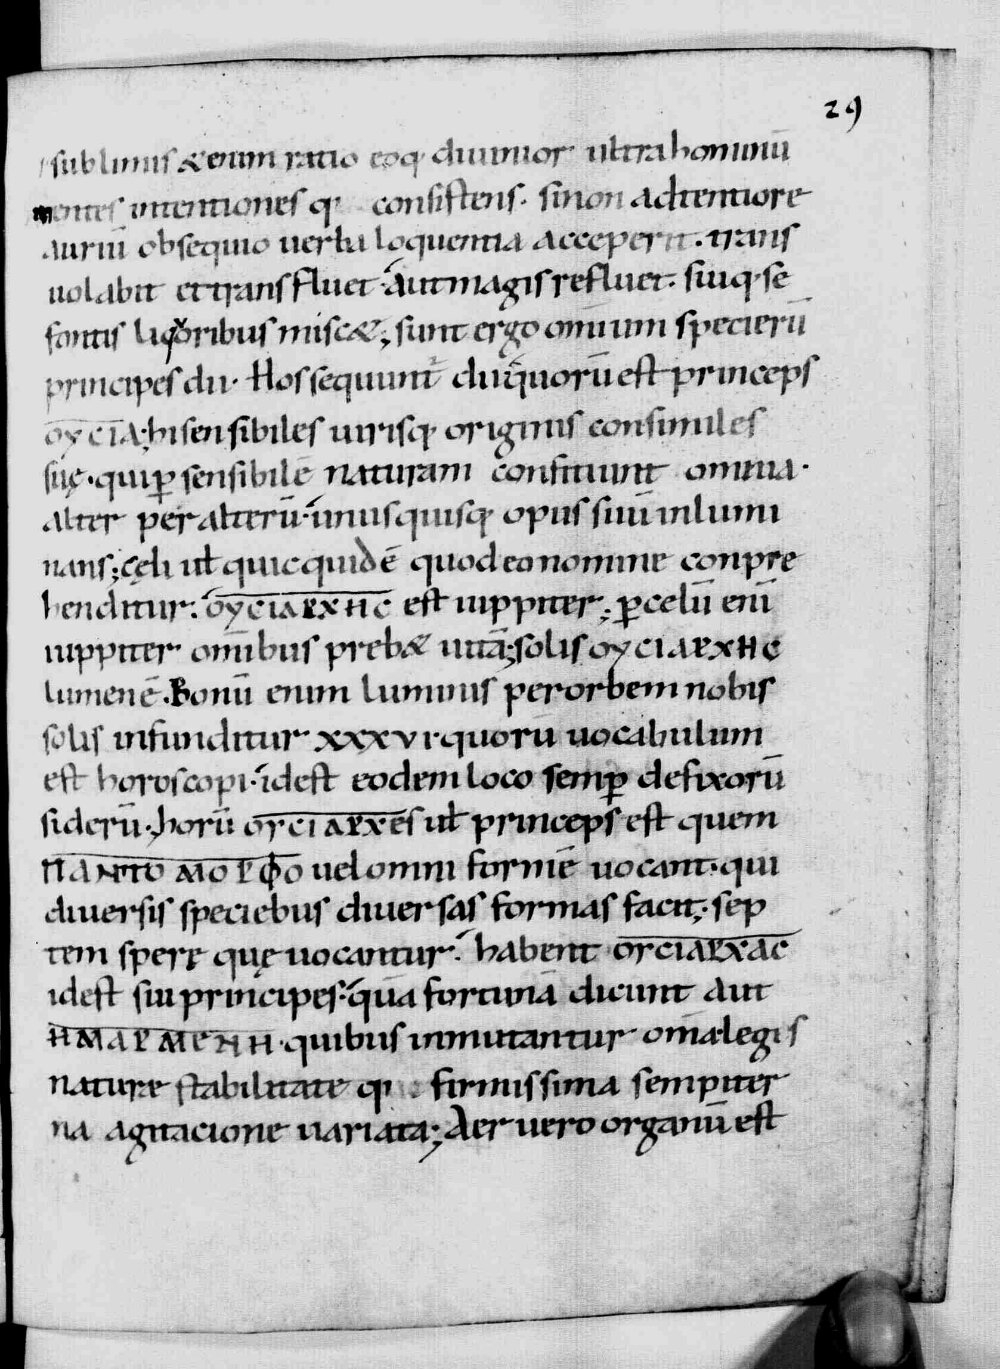 29
sublimis & enim ratio eoq; diuinior ultra hominū
mentes intentiones q consistens. si non adtentiore
auriū obsequio uerba loquentia acceperit. trans
uolabit et transfluet. aut magis refluet. siuq; se
fontis liq̄oribus misc&; sunt ergo omīum specierū
principes dii. Hos sequunt̄ dii quorū est princeps
ΟΥCΙΑ; hi sensibiles uirisq; originis consimiles
suę. qui ꝑ sensibilē naturam confitiunt omnia.
alter per alterū. unus quisq; opus suū inlumi
nans; cęli ul quicquid ē quod eo nomine conpre
henditur. ΟΥCΙΑΡΧΗC est iuppiter; ꝑ celū enī
iuppiter omībus preb& uitā; solis ΟΥCΙΑΡΧΗC
lumen ē. Bonū enim luminis per orbem nobis
solis infunditur xxxvi quorū uocabulum
est horoscopi. idest eodem loco semꝑ defixorū
siderū. horū ΟΥCΙΑΡΧΕS ul princeps est quem
ΠΑΝΤΟΜΟΡΦΟ uel omni formē uocant. qui
diuersis speciebus diuersas formas facit; sep
tem sperę quę uocantur. habent ΟΥCΙΑΡΧΑC
idest sui principes. quā fortunā dicunt aut
ΗΜΑΡΜΕΝΗ. quibus inmutantur omīa legis
naturę stabilitate q firmissima sempiter
na agitacione uariata; Aer uero organū est